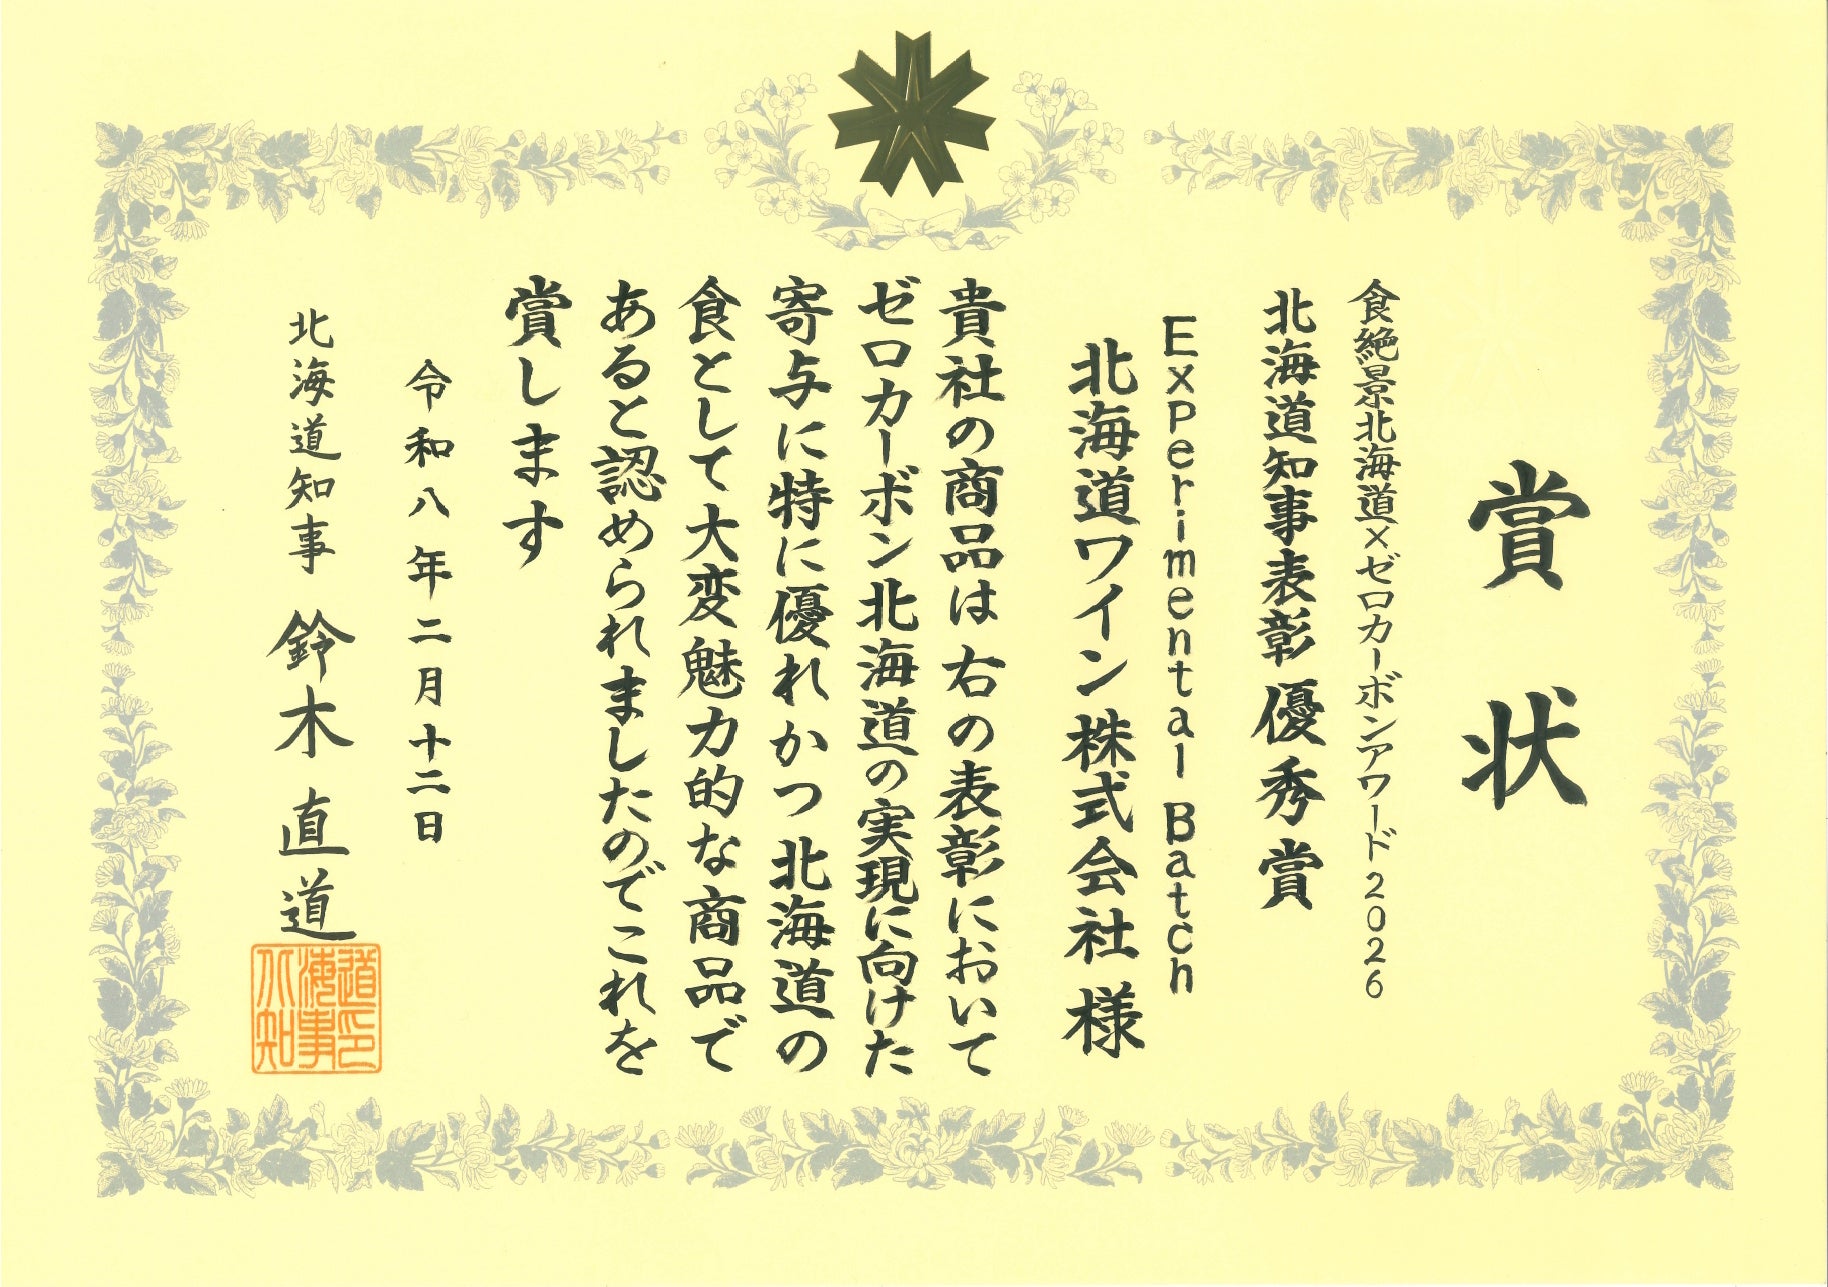 賞状
食絶景北海道×ゼロカーボンアワード2026
北海道知事表彰 優秀賞
Experimental Batch
北海道ワイン株式会社 様
貴社の商品は右の表彰において
ゼロカーボン北海道の実現に向けた
寄与に特に優れかつ北海道の
食として大変魅力的な商品で
あると認められましたのでこれを
賞します
令和八年二月十二日
北海道知事 鈴木直道
北海道知事印